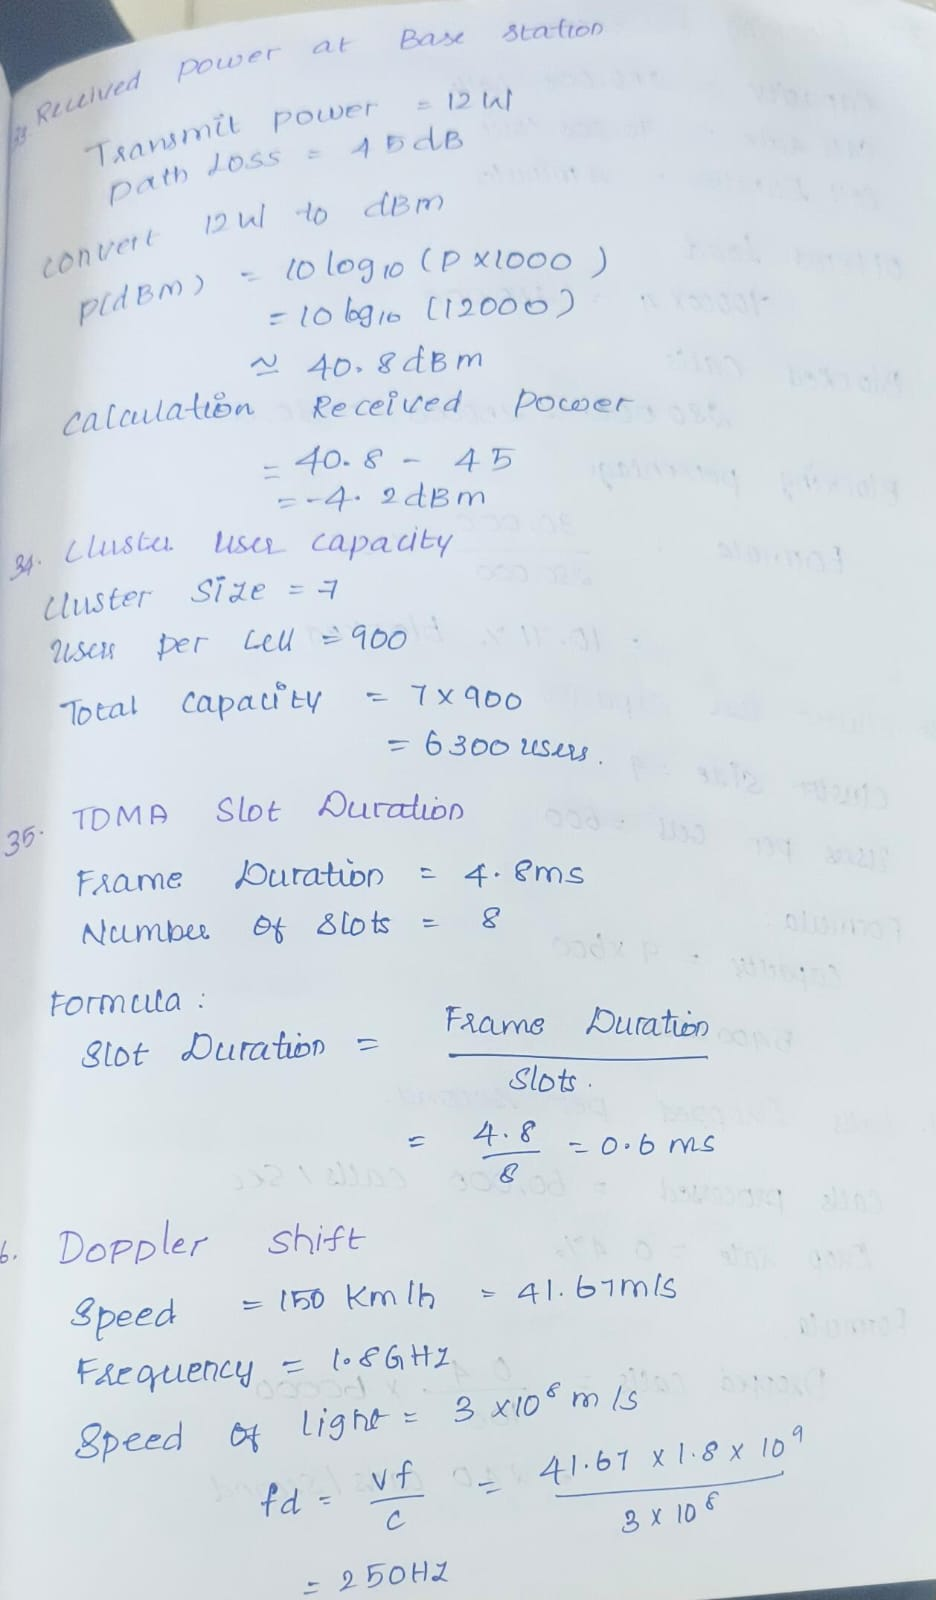 33. Received power at Base station
Transmit power = 12 W
path Loss = 45 dB
convert 12 W to dBm
P(dBm) = 10 log10 (P x1000)
= 10 log10 (12000)
≈ 40.8 dBm
calculation Received power
= 40.8 - 45
= -4.2 dBm
34. Cluster user capacity
Cluster Size = 7
Users per Cell = 900
Total capacity = 7 x 900
= 6300 users.
35. TDMA Slot Duration
Frame Duration = 4.8ms
Number Of Slots = 8
Formula :
Slot Duration = Frame Duration
Slots.
= 4.8 / 8 = 0.6 ms
6. Doppler shift
Speed = 150 Km/h = 41.67m/s
Frequency = 1.8GHZ
Speed Of light = 3 x10^8 m/s
fd = vf / c = 41.67 x 1.8 x 10^9 / 3 x 10^8
= 250HZ